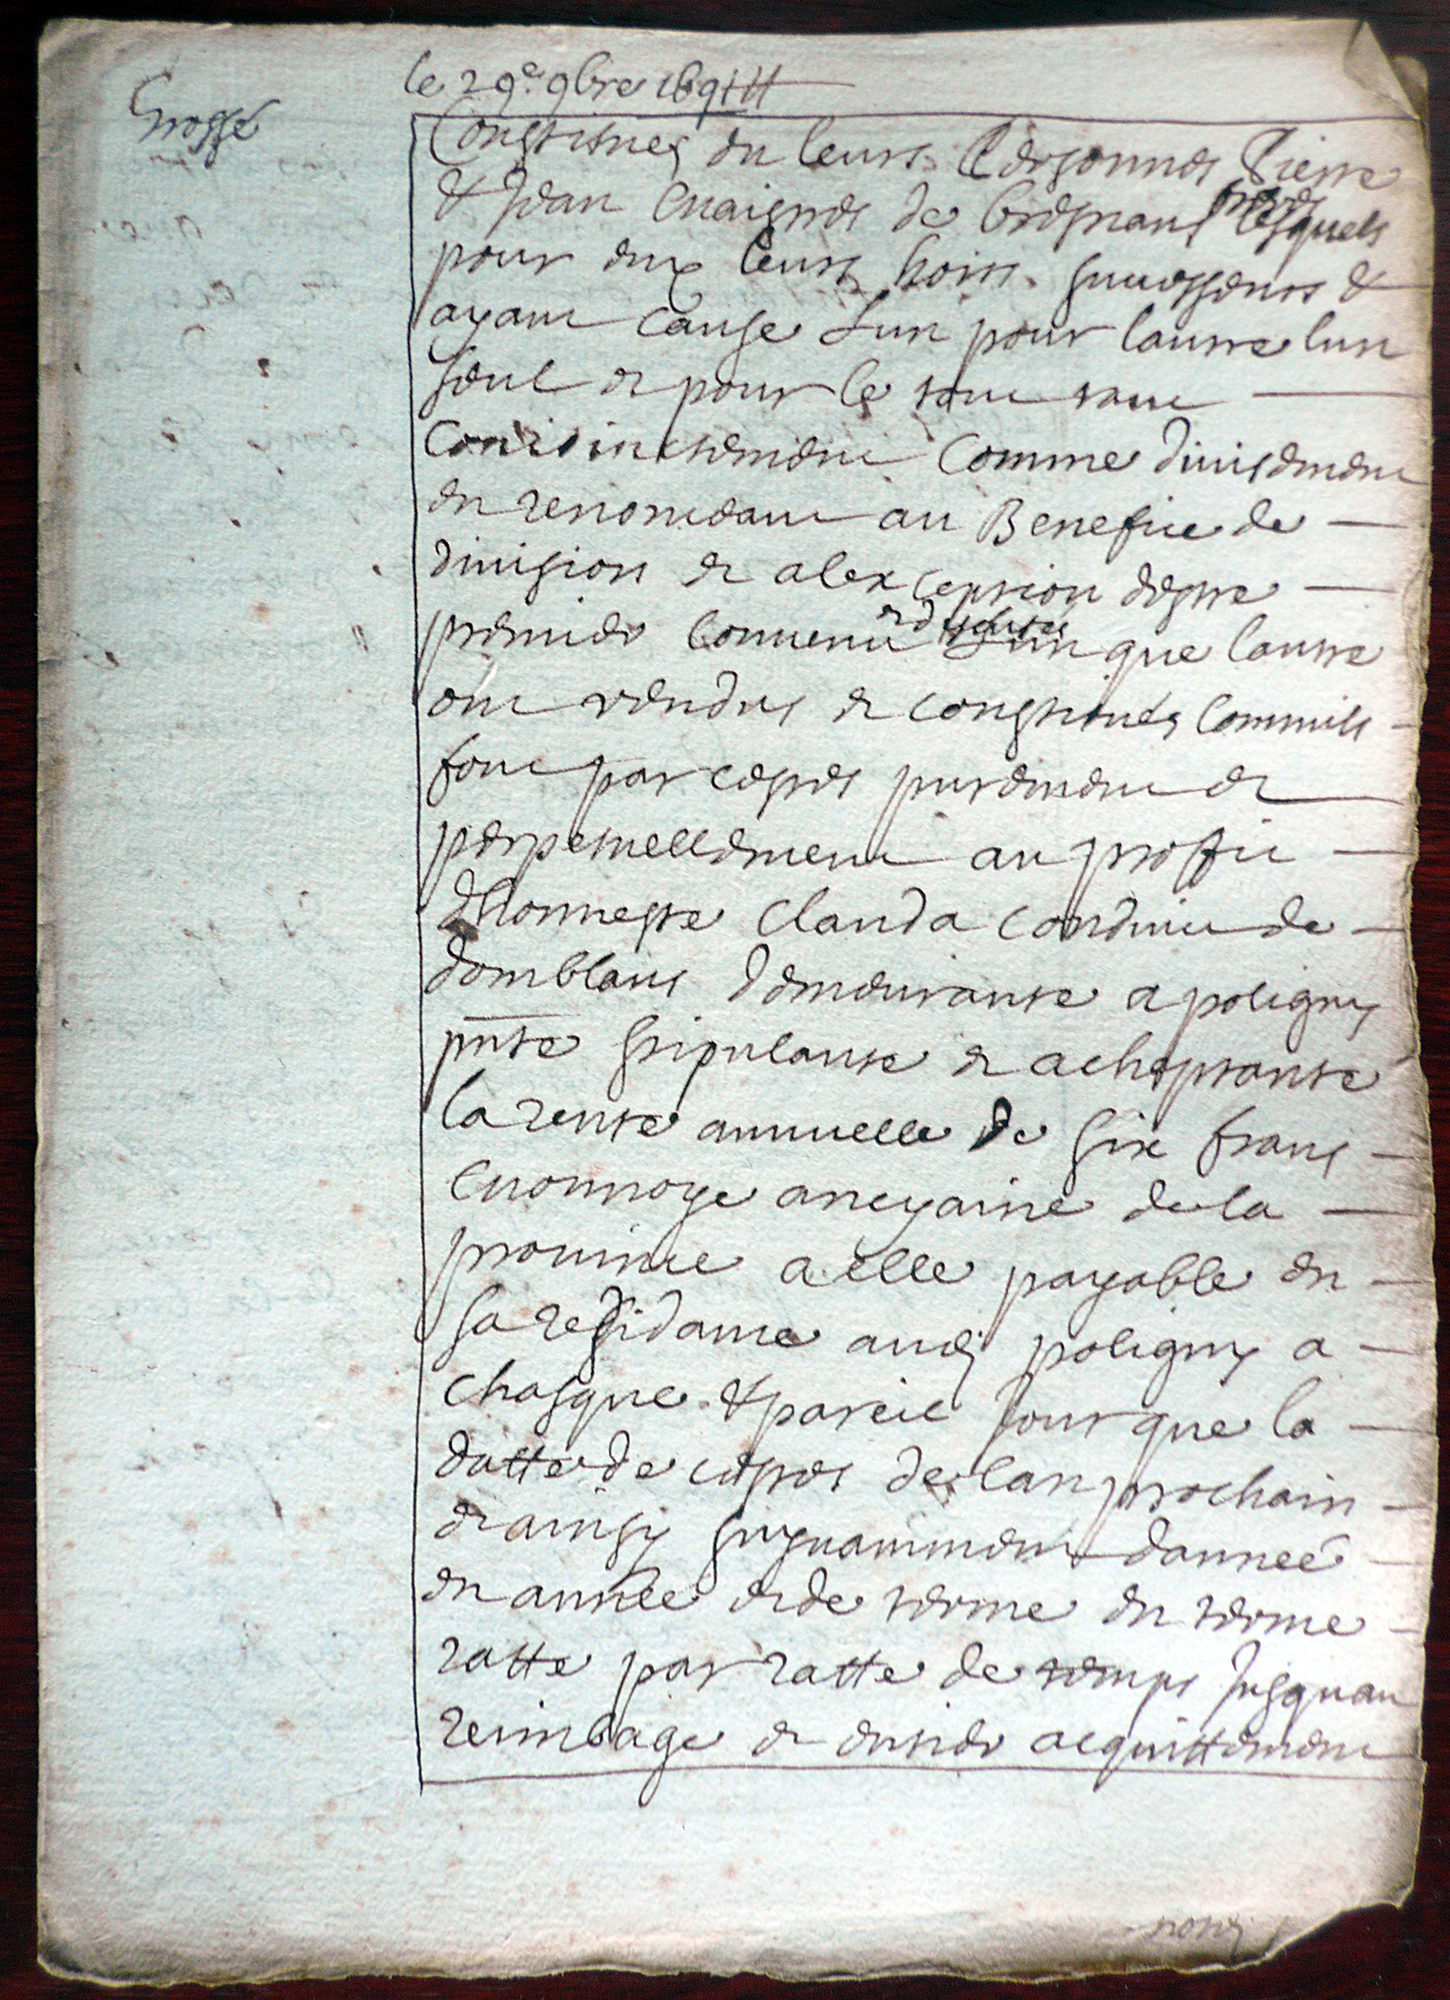 Grossé
le 29e 9bre
Constitues en leurs Personnes Pierre
& Jean Maigros de Bresnans freres lesquels
pour eux leurs hoirs successeurs &
ayant cause Lun pour lautre lun
seul et pour le tout tant
conioinctement Comme diuisement
en renonceant au Benefice de
diuision et alexception destre
premier conuenu et discuté Lun que lautre
ont vendus et constitués Comm'ils
font par cestes purement et
perpetuellement au proffit
dhonneste Clauda de
domblans demeurante a poligny
pnte stipulante et acheptante
la rente annuelle de six frans
monnoye ancyaine de la
prouince a elle payable en
sa residance audj poligny a
chasque & pareil Jour que la
datte de cestes de lan prochain
et ainsy suyuamment dannee
en année et de terme en terme
ratte par ratte de temps Jusquau
reimbage et entier acquittement